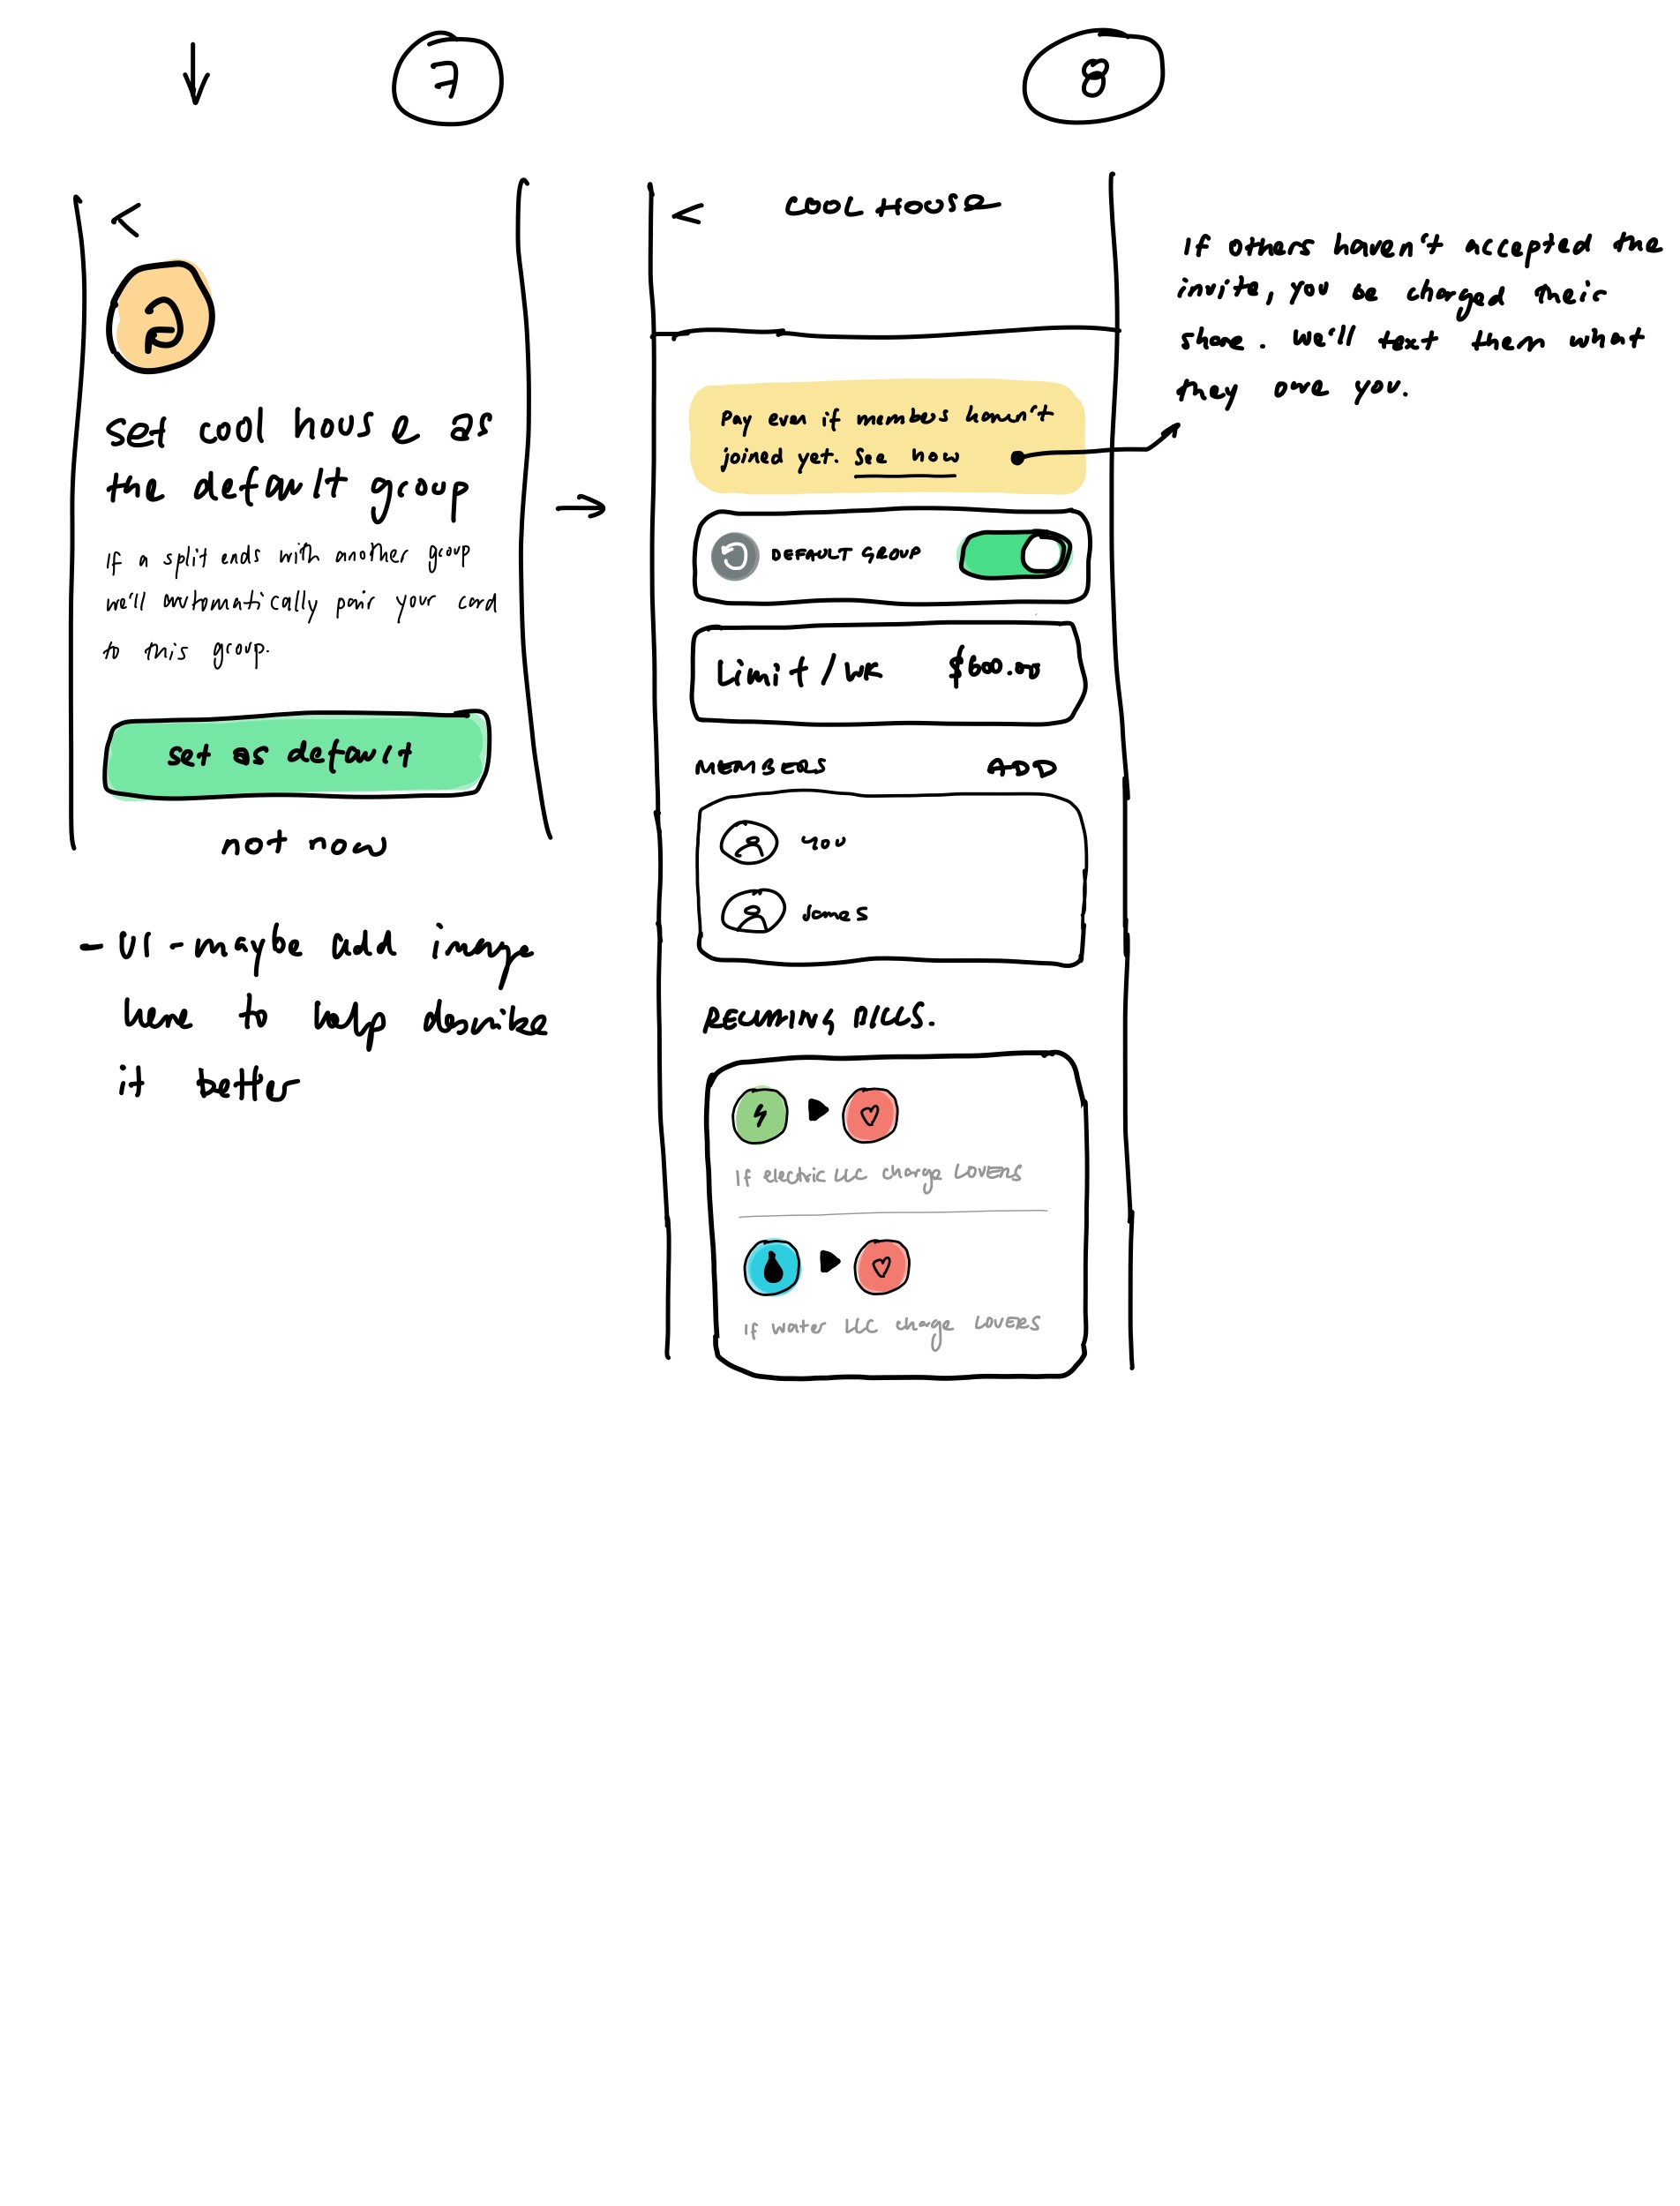 7
8
<
set cool house as
the default group
If a split ends with another group
we'll automatically pair your card
to this group.
set as default
not now
- UI - maybe add image
here to help describe
it better
< COOL HOUSE
Pay even if members haven't
joined yet. See how
DEFAULT GROUP
Limit / WK $600.00
MEMBERS ADD
You
James
RECURRING BILLS.
If electric LLC charge LOVERS
If water LLC charge LOVERS
If others haven't accepted the
invite, you be charged their
share. We'll text them what
they owe you.